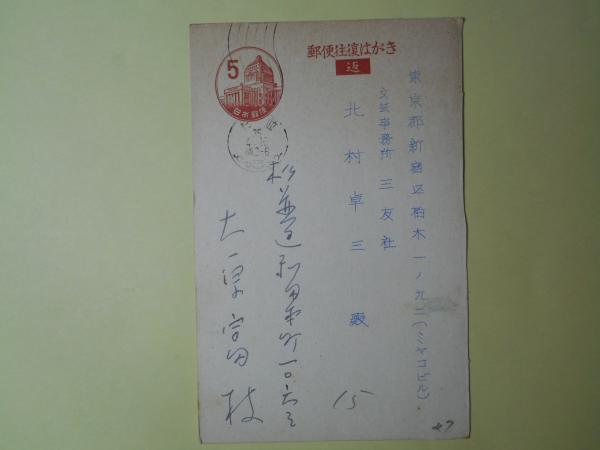 郵便往復はがき
近
5
日本郵便
東京都新宿区柏木一ノ九二(ミヤコビル)
文芸事務所 三友社
北村卓三 殿
杉並区和田本町一〇六三
大原富枝
15
47